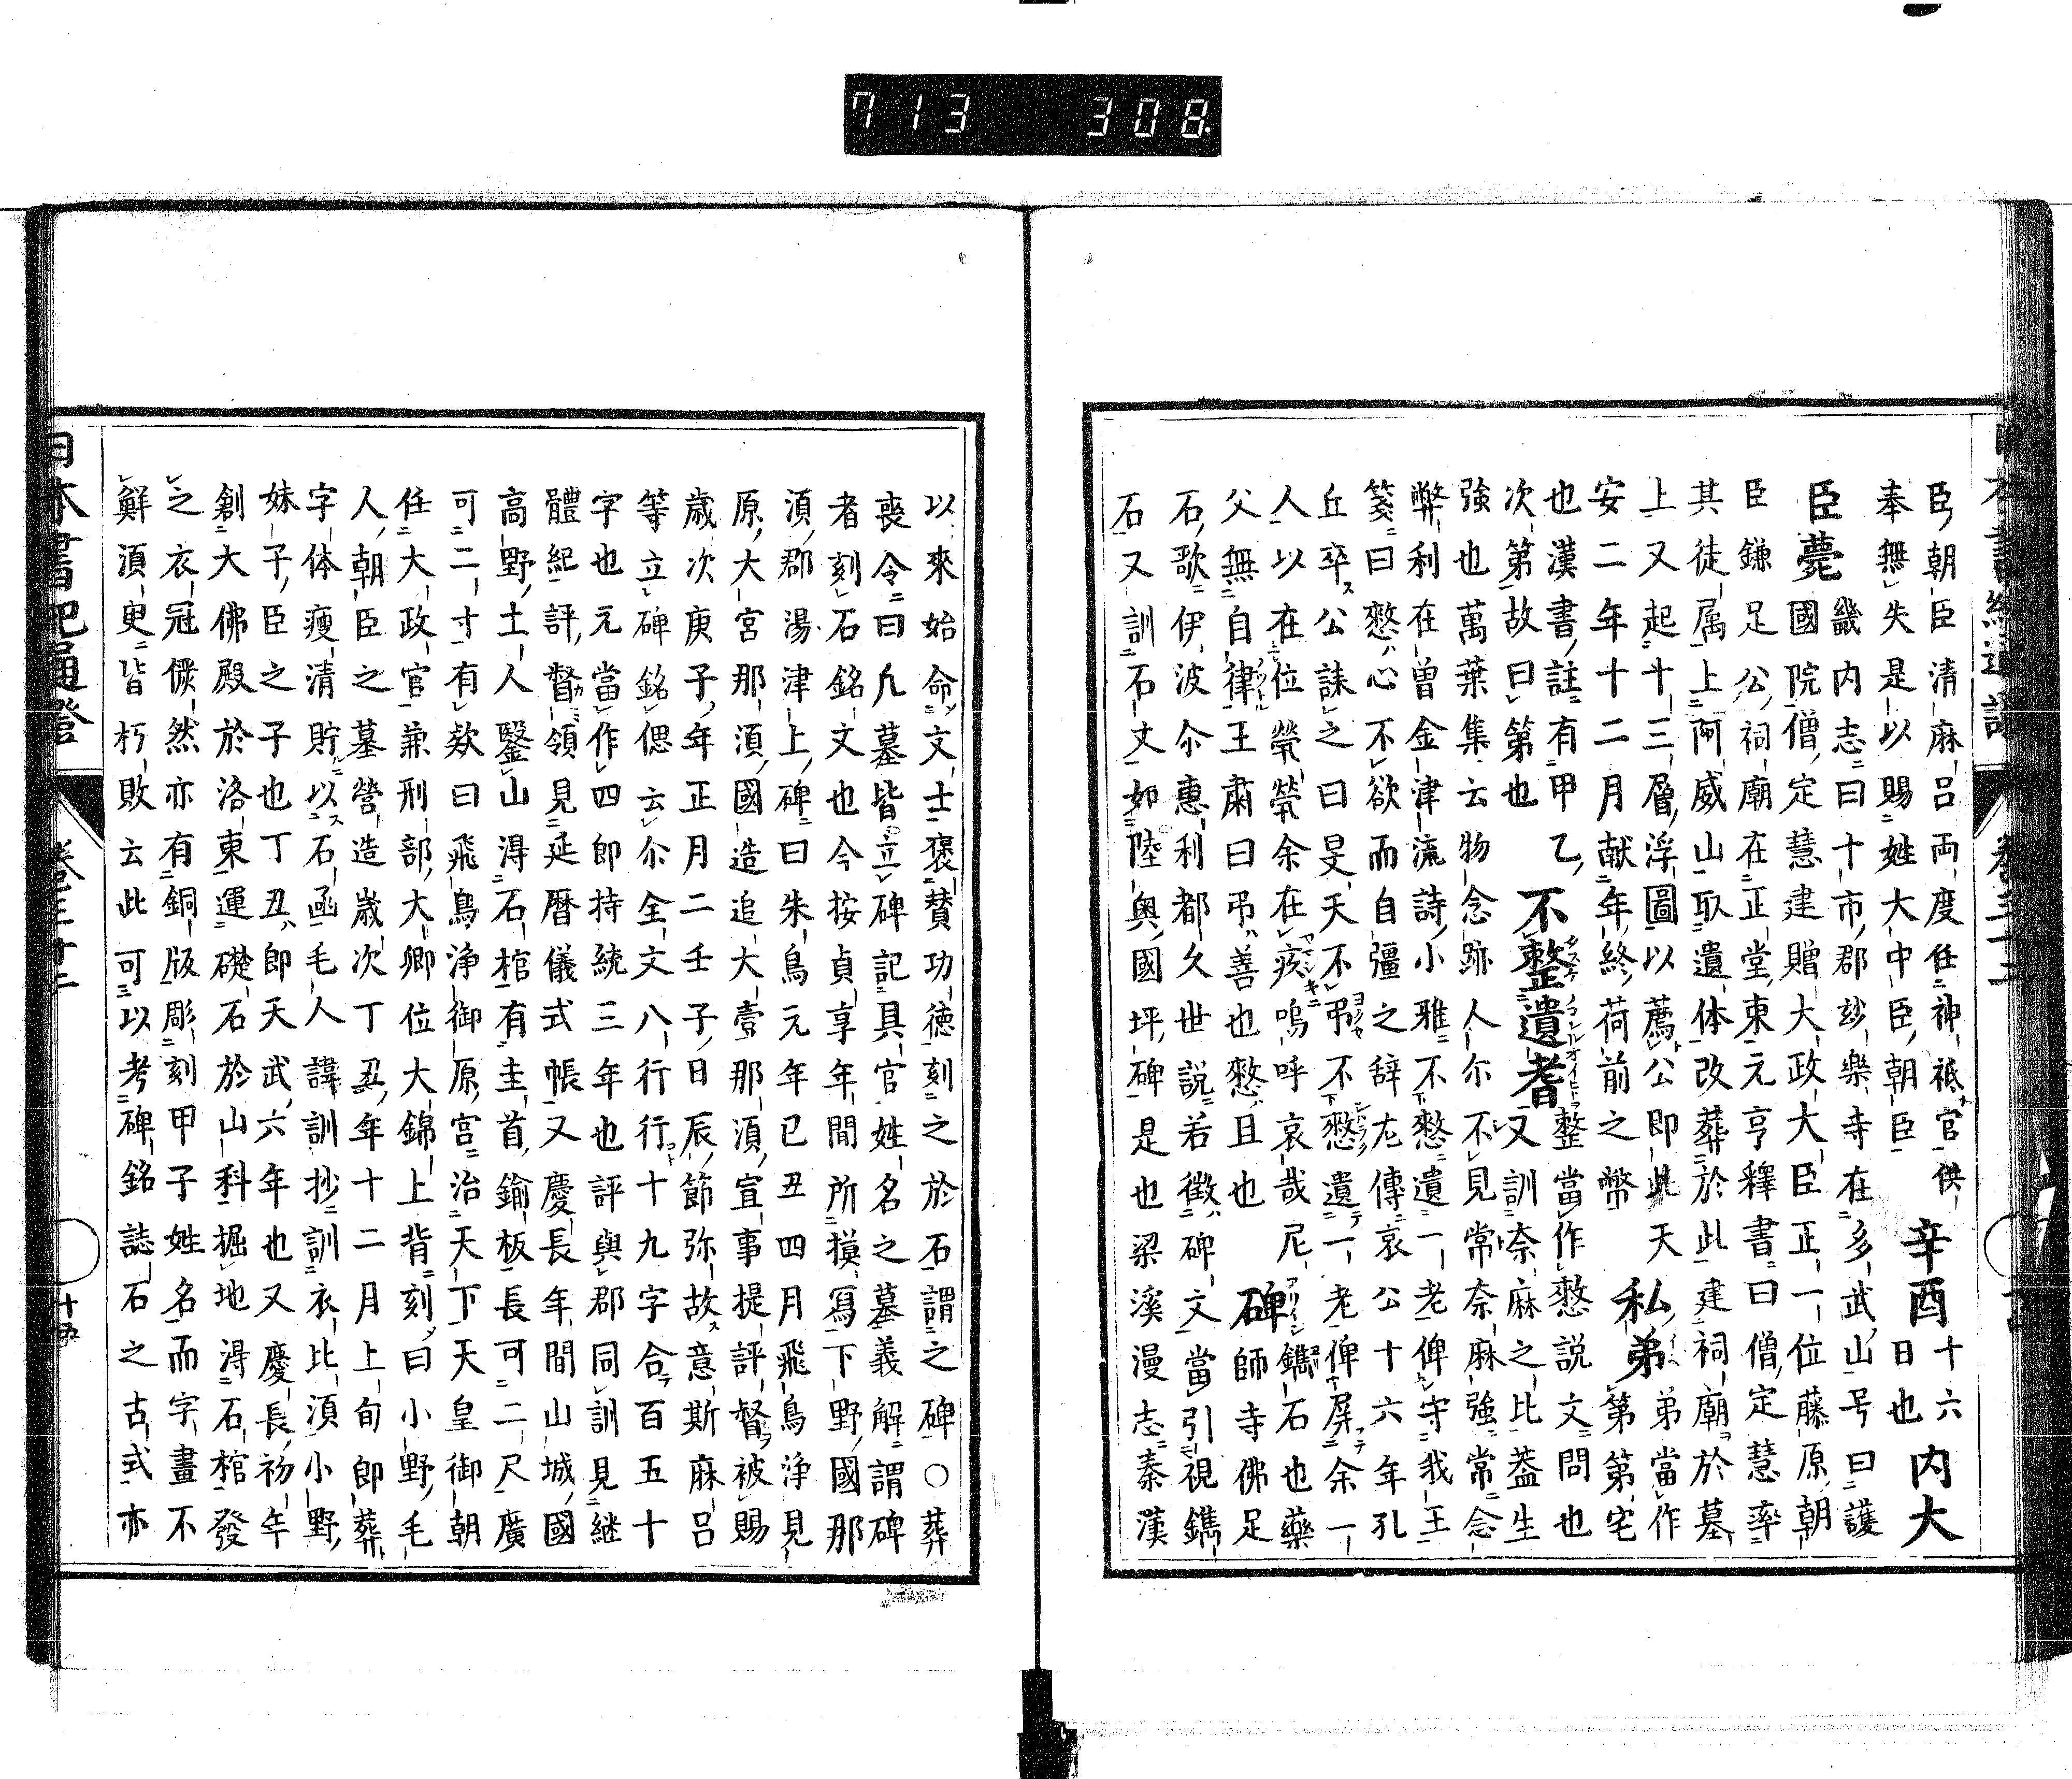 713 308
臣朝臣清麻呂両度任神祇官供
奉無失是以賜姓大中臣朝臣 辛酉 十六日也 内大
臣薨 畿内志曰十市郡玅樂寺在多武山号曰護
國院僧定慧建贈大政大臣正一位藤原朝
臣鎌足公祠廟在正堂東元亨釋書曰僧定慧率
其徒属上阿威山取遺体改葬於此建祠廟於墓
上又起十三層浮圖以薦公即此天
安二年十二月献年終荷前之幣 私弟 弟當作第第宅
也漢書註有甲乙
次第故曰第也 不整遺耆 整當作憖説文問也又訓奈麻之比蓋生
強也萬葉集云物念跡人尒不見常奈麻強常念
弊利在曽金津流詩小雅不憖遺一老俾守我王
箋曰憖心不欲而自彊之辞左傳哀公十六年孔
丘卒公誄之曰旻天不弔不憖遺一老俾屏余一
人以在位煢煢余在疚嗚呼哀哉尼
父無自律王肅曰弔善也憖且也 碑 鐫石也藥師寺佛足
石歌伊波尒惠利都久世説若徴碑文當引視鐫
石又訓石文如陸奥國坪碑是也梁溪漫志秦漢
以來始命文士褒賛功徳刻之於石謂之碑○葬
喪令曰凡墓皆立碑記具官姓名之墓義解謂碑
者刻石銘文也今按貞享年間所摸寫下野國那
須郡湯津上碑曰朱鳥元年已丑四月飛鳥浄見
原大宮那須國造追大壹那須宣事提評督被賜
歳次庚子年正月二壬子日辰節弥故意斯麻呂
等立碑銘偲云尒全文八行行十九字合百五十
字也元當作四即持統三年也評與郡同訓見継
體紀評督領見延暦儀式帳又慶長年間山城國
高野土人鑿山得石棺有圭首鍮板長可二尺廣
可二寸有款曰飛鳥浄御原宮治天下天皇御朝
任大政官兼刑部大卿位大錦上背刻曰小野毛
人朝臣之墓營造歳次丁丑年十二月上旬即葬
字体瘦清貯以石函毛人諱訓抄訓衣比須小野
妹子臣之子也丁丑即天武六年也又慶長初年
創大佛殿於洛東運礎石於山科掘地得石棺發
之衣冠儼然亦有銅版彫刻甲子姓名而字畫不
鮮須臾皆朽敗云此可以考碑銘誌石之古式亦
日本書紀通證 卷三十二 十五